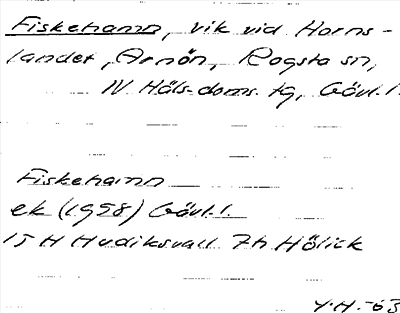 Fiskehamn, vik vid Horns-
landet, Arnön, Rogsta sn,
N Häls. doms. tg, Gävl. l.
Fiskehamn
ek (1958) Gävl. l.
15 H Hudiksvall 7h Hölick
Y.H.-63